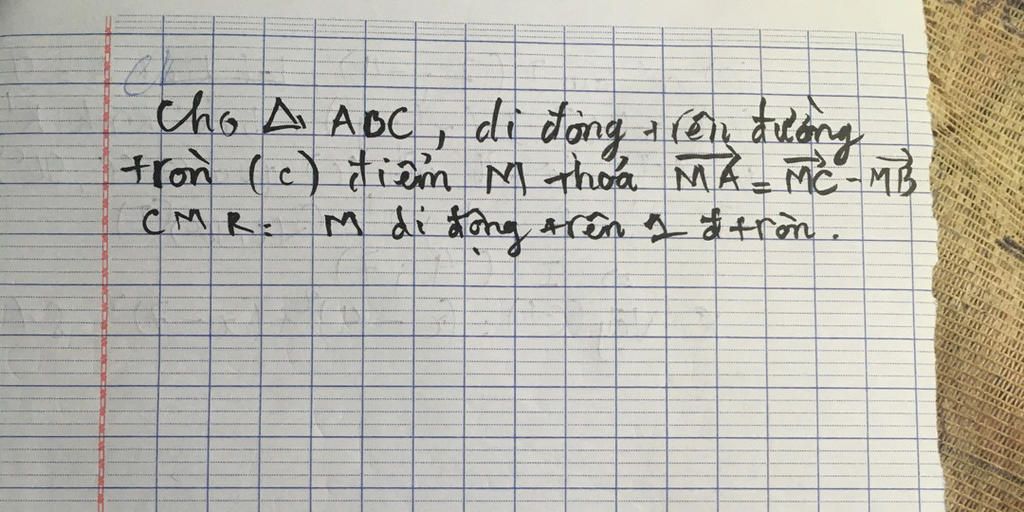 Cho Δ ABC, di động trên đường
tròn (c) điểm M thoả \overrightarrow{MA} = \overrightarrow{MC} - \overrightarrow{MB}
CMR: M di động trên 1 đ tròn.